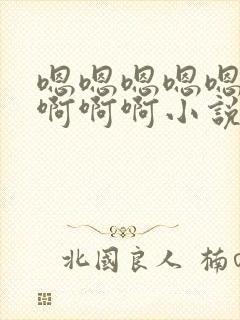 嗯嗯嗯嗯嗯
啊啊啊小説
北國良人 楠